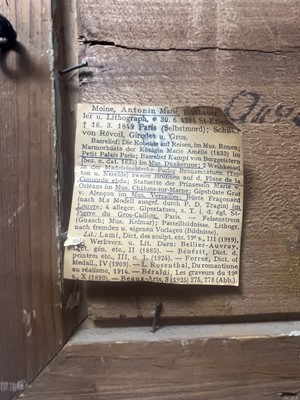 Moine, Antonin Marie, Bildhauer, Ma-
ler u. Lithograph, * 30. 6. 1796 St-Etienne,
† 18. 3. 1849 Paris (Selbstmord); Schüler
von Révoil, Girodet u. Gros.
Basrelief: Die Kobolde auf Reisen, im Mus. Rouen;
Marmorbüste der Königin Marie Amélie (1833) im
Petit Palais Paris; Basrelief Kampf von Burggeistern
(bez. u. dat. 1835) im Mus. Dunkerque; 2 Weihkessel
in der Madeleinekirche Paris; Brunnenstatuen
u. zweier Brunnen auf d. Place de la
Concorde ebda; Statuette der Prinzessin Marie v.
Orléans im Mus. Châlons-sur-Marne; Gipsbüste Graf
v. Alençon im Mus. Versailles; Büste Fragonard
(nach M.s Modell ausgef. durch P. D. Tragin) im
Louvre; 4 alleg. Gipsstatuen, z. T. i. d. égl. St-
Pierre du Gros-Caillou, Paris. — Felsenstrom
(Guasch; Mus. Kolmar); Pastellbildnisse. Lithogr.
nach fremden u. eigenen Vorlagen (Bildnisse).
Lit.: Lami, Dict. des sculpt. etc. 19e s., III (1919),
m. Werkverz. u. Lit. Dazu: Bellier-Auvray,
Dict. gén. etc., II (1885). — Bénézit, Dict. d.
peintres etc., III, o. J. [1924]. — Forrer, Dict. of
Medall., IV (1909). — L. Rosenthal, Du romantisme
au réalisme, 1914. — Béraldi, Les graveurs du 19e
s., X (1890). — Beaux-Arts, 3 (1925) 275, 278 (Abb.).